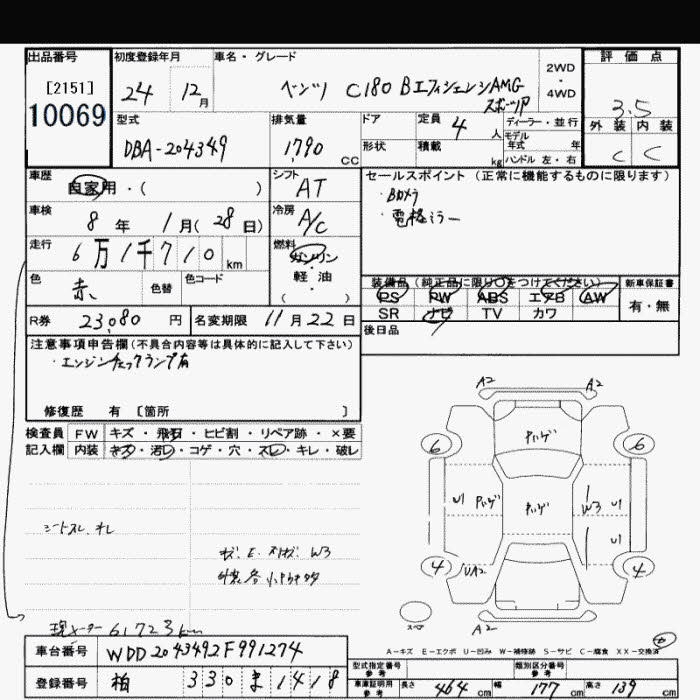 出品番号 初度登録年月 車名・グレード 評価点
[2151]
10069
24 12月 ベンツ C180 BエフィシェンシAMG
スポーツP
2WD
・
4WD
3.5
外装 内装
C C
型式 排気量 ドア 定員 4 人 ディーラー・並行
モデル
年式 年
DBA-204349 1,790 CC 形状 積載 kg ハンドル 左・右
車歴 自家用・( ) シフト AT
セールスポイント (正常に機能するものに限ります)
・Bカメラ
・電格ミラー
車検 8年 1月(28日) 冷房 A/C
走行 6万1千710 km 燃料 ガソリン
・
軽油
( )
色 赤、 色替 色コード
装備品 (純正品に限り○をつけてください) 新車保証書
PS PW ABS エアB AW 有・無
SR ナビ TV カワ
R券 23,080円 名変期限 11月22日
後日品
注意事項申告欄(不具合内容等は具体的に記入して下さい)
・エンジンチェックランプ有
修復歴 有 [箇所 ]
検査員 FW キズ・飛石・ヒビ割・リペア跡・×要
記入欄 内装 キズ・汚レ・コゲ・穴・スレ・キレ・破レ
A2 A2
パハゲ
6 6
U1 パハゲ パハゲ W3 U1
U1
4 UA2 4
スペア
A2
シートスレ、キレ
W3
現メーター 61723km
A-キズ E-エクボ U-凹み W-補修跡 S-サビ C-腐食 XX-交換済
車台番号 WDD2043492F991274
登録番号 柏 330 ま 1418
型式指定番号
参考
類別区分番号
参考
車庫証明用
参考
長さ 464 cm 幅 177 cm 高さ 139 cm